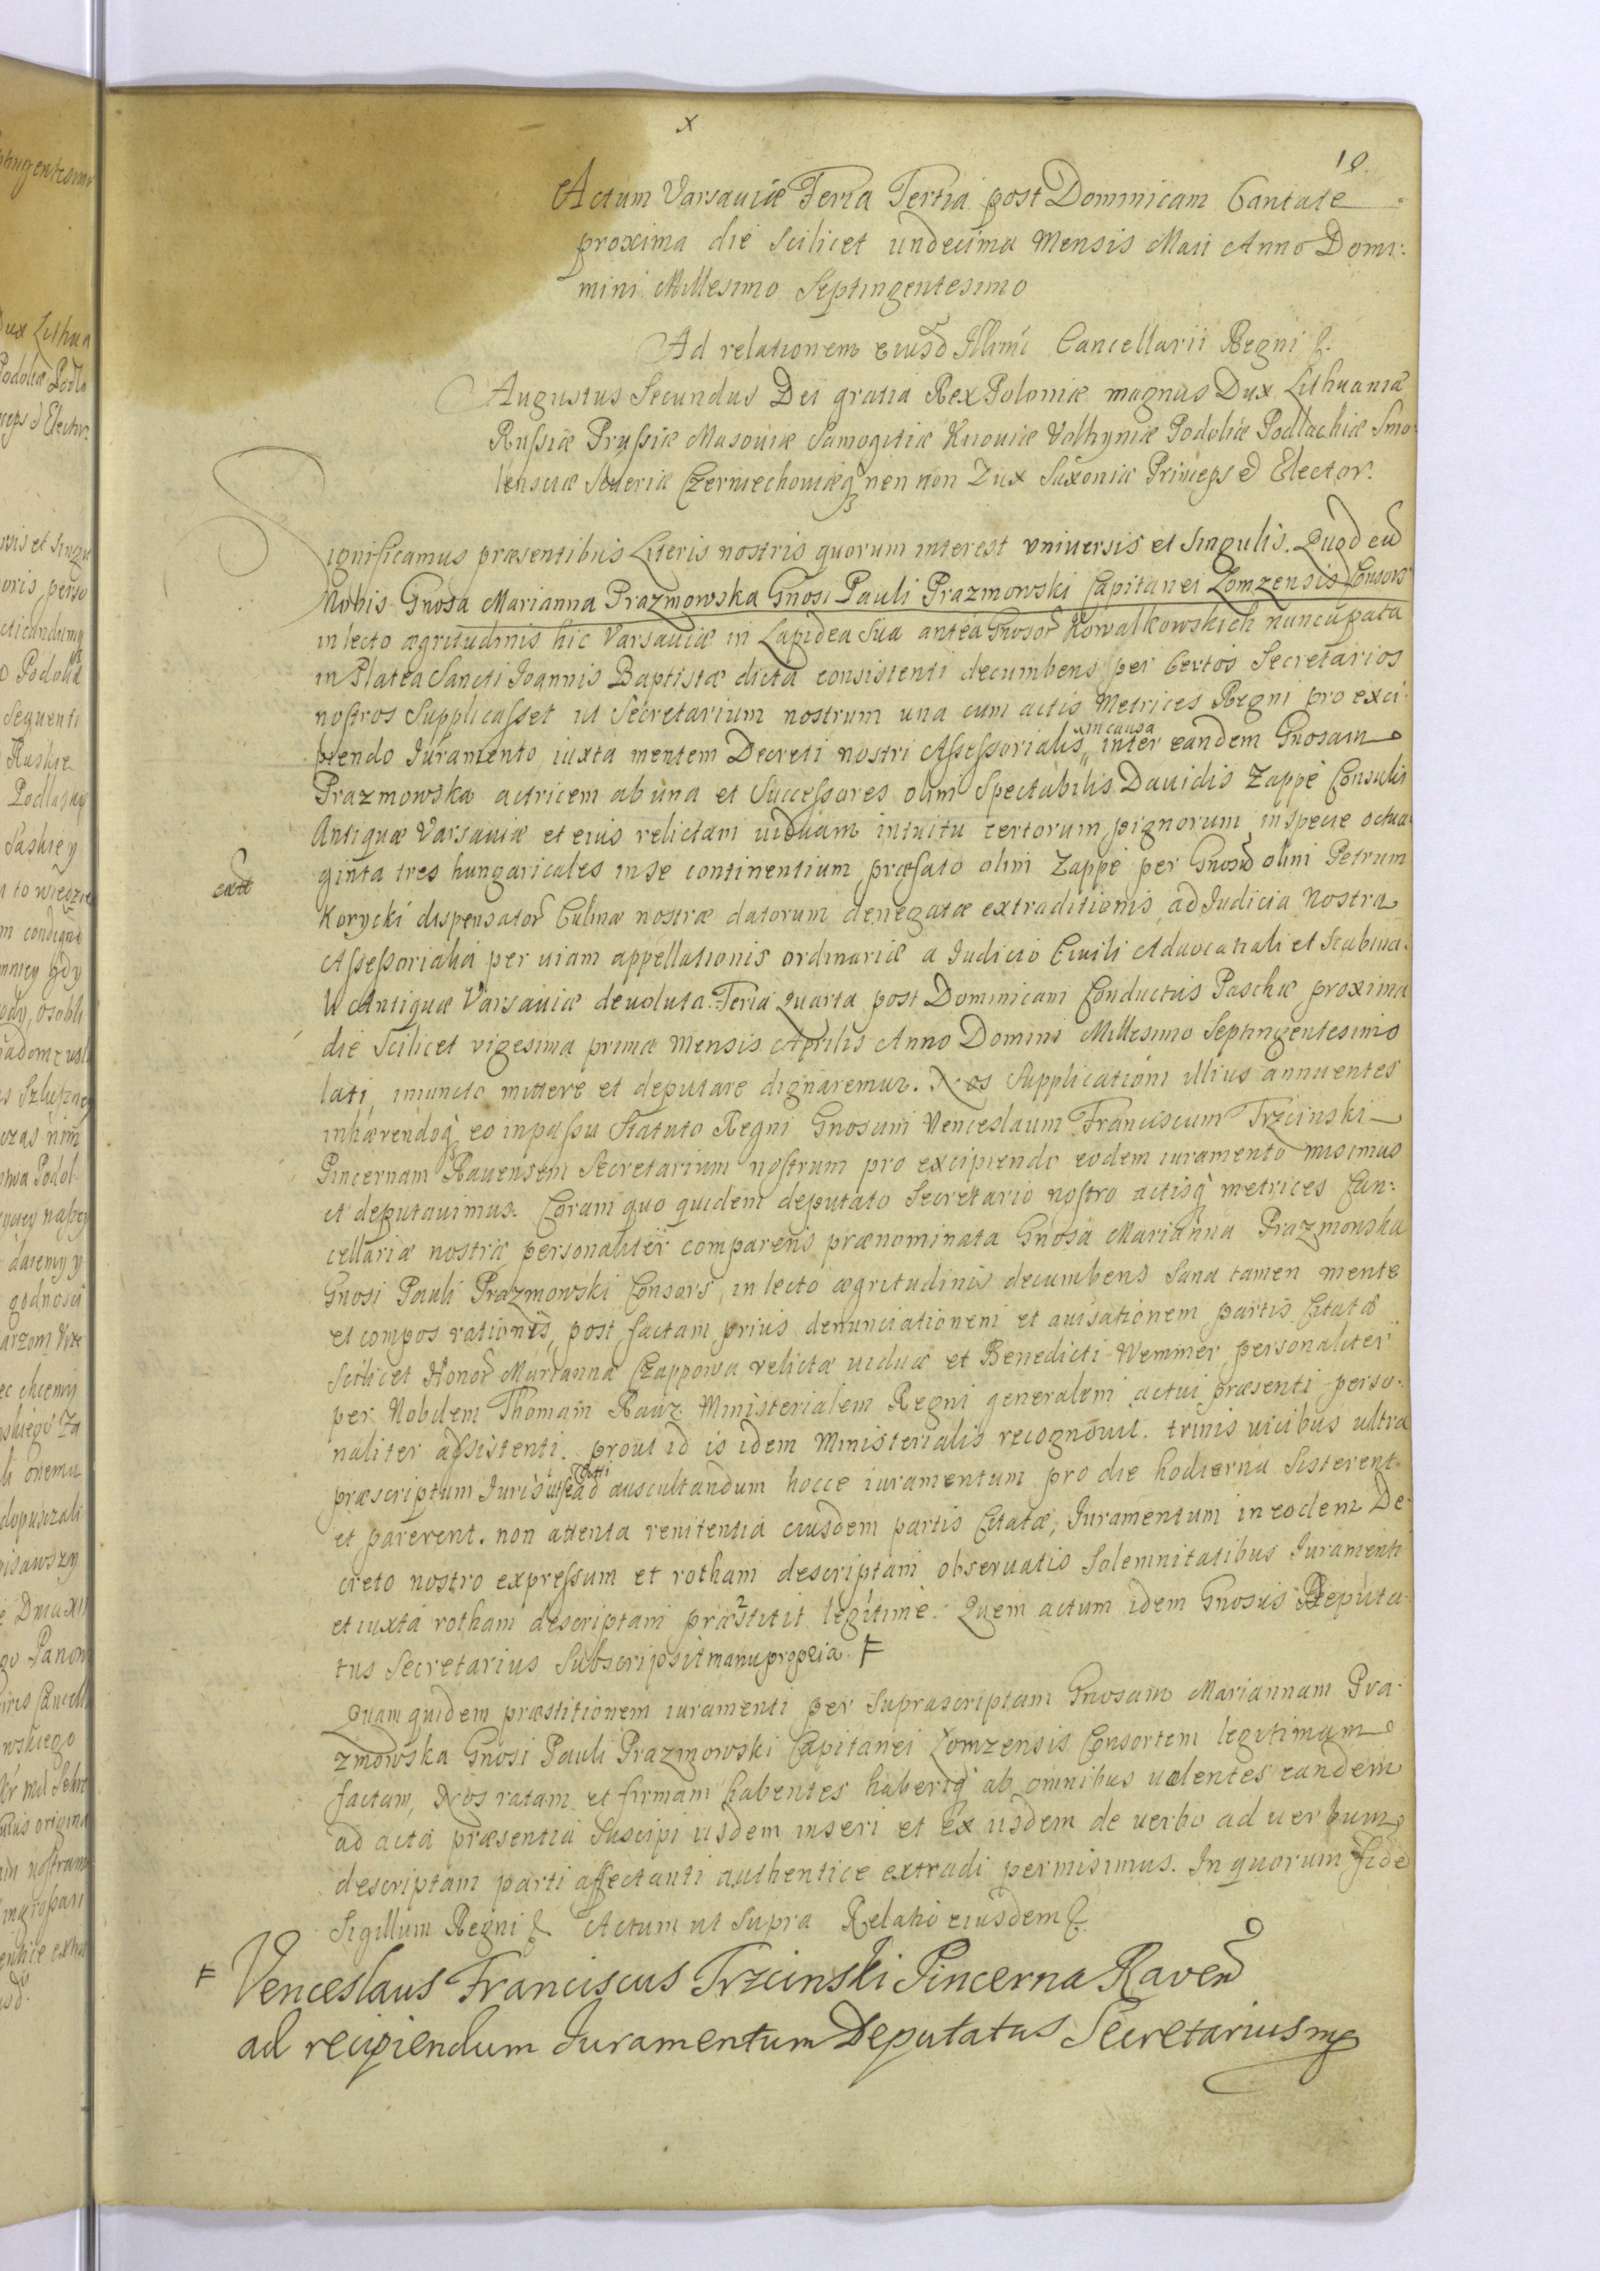 x
19.
Actum Varsaviæ Feria Tertia post Dominicam Cantate
proxima die scilicet undecima Mensis Maii Anno Domi:
mini Millesimo Septingentesimo
Ad relationem eiusd Illmi Cancellarii Regni &.
Augustus Secundus Dei gratia Rex Poloniæ magnus Dux Lithuaniæ
Russiæ Prussiæ Masoviæ Samogitiæ Kiioviæ Volhyniæ Podoliæ Podlachiæ Smo:
lensciæ Severiæ Czerniechoviæq nen non Dux Saxoniæ Princeps et Elector.
Significamus præsentibus Literis nostris quorum interest universis et singulis. Quod cu
Nobis Gnosa Marianna Prazmowska Gnosi Pauli Prazmowski Capitanei Lomzensis Consors
in lecto ægritudinis hic Varsaviæ in Lapidea sua antea Gnosor Kowalkowskich nuncupata
in Platea Sancti Joannis Baptistæ dicta consistenti decumbens per Certos Secretarios
nostros supplicasset ut Secretarium nostrum una cum actis Metrices Regni pro exci:
piendo Juramento iuxta mentem Decreti nostri Assessorialis in causa inter eandem Gnosam
Prazmowska actricem ab una et Successores olim Spectabilis Davidis Zappe Consulis
Antiquæ Varsaviæ et eius relictam viduam intuitu certorum pignorum in specie octua:
extt
ginta tres hungaricales in se continentium præfato olim Zappe per Gnosu olim Petrum
Korycki dispensator Culinæ nostræ datorum denegatæ extraditionis ad Judicia Nostra
Assessorialia per viam appellationis ordinariæ a Judicio Civili Advocatiali et Scabina:
li Antiquæ Varsaviæ devoluta Feria Quarta post Dominicam Conductus Paschæ proxima
die scilicet vigesima prima Mensis Aprilis Anno Domini Millesimo Septingentesimo
lati, iniuncto mittere et deputare dignaremur. Nos supplicationi illius annuentes
inhærendoq eo in passu Statuto Regni Gnosum Venceslaum Franciscum Trzcinski
Pincernam Ravensem Secretarium nostrum pro excipiendo eodem iuramento misimus
et deputavimus. Coram quo quidem deputato Secretario nostro actisq metrices Can:
cellariæ nostræ personaliter comparens prænominata Gnosa Marianna Prazmowska
Gnosi Pauli Prazmowski Consors, in lecto ægritudinis decumbens sana tamen mente
et compos rationis, post factam prius denunciationem et avisationem partis Citatæ
scilicet Honor Mariannæ Czappowa relictæ viduæ et Benedicti Wemmer personaliter
per Nobilem Thomam Rauz Ministerialem Regni generalem actui præsenti perso:
naliter assistenti. prout id is idem Ministerialis recognovit. trinis vicibus ultra
præscriptum Juris ut se ad auscultandum hocce iuramentum pro die hodierna sisterent
et parerent. non attenta renitentia eiusdem partis Citatæ, Juramentum in eodem De:
creto nostro expressum et rotham descriptam observatis solemnitatibus Juramenti
et iuxta rotham descriptam præstitit legitime. Quem actum idem Gnosus Deputa:
tus Secretarius subscripsit manu propria. F
Quam quidem præstitionem iuramenti per suprascriptam Gnosam Mariannam Pra:
zmowska Gnosi Pauli Prazmowski Capitanei Lomzensis Consortem legitimam
factam, Nos ratam et firmam habentes haberiq ab omnibus volentes eandem
ad acta præsentia suscipi iisdem inseri et ex iisdem de verbo ad verbum
descriptam parti affectanti authentice extradi permisimus. In quorum fide
Sigillum Regni & Actum ut supra Relatio eiusdem &.
F Venceslaus Franciscus Trzcinski Pincerna Raven
ad recipiendum Juramentum Deputatus Secretarius mp